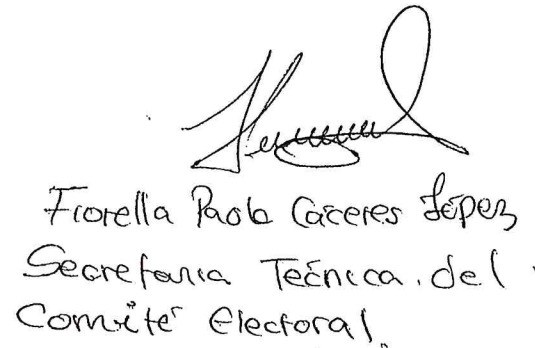 Fiorella Paola Cáceres López
Secretaria Técnica del
Comité Electoral.